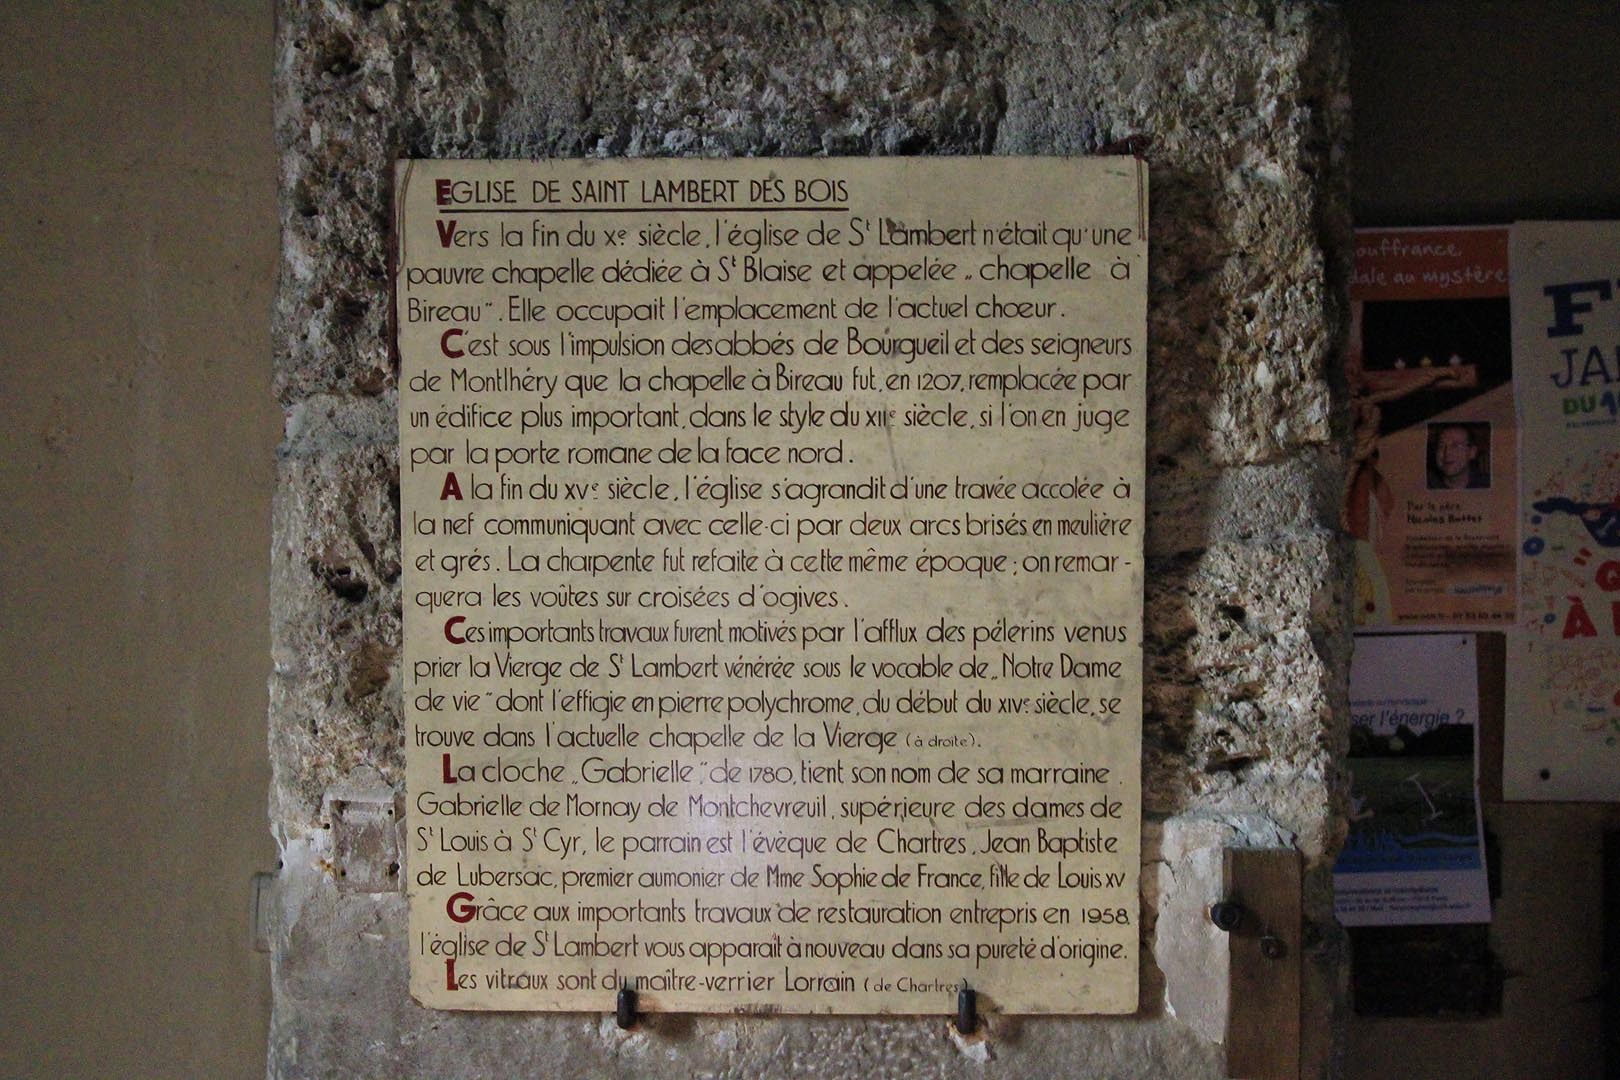 EGLISE DE SAINT LAMBERT DES BOIS
Vers la fin du Xe siècle, l'église de St Lambert n'était qu'une
pauvre chapelle dédiée à St Blaise et appelée „ chapelle à
Bireau". Elle occupait l'emplacement de l'actuel chœur.
C'est sous l'impulsion des abbés de Bourgueil et des seigneurs
de Montlhéry que la chapelle à Bireau fut, en 1207, remplacée par
un édifice plus important, dans le style du XIIe siècle, si l'on en juge
par la porte romane de la face nord.
A la fin du XVe siècle, l'église s'agrandit d'une travée accolée à
la nef communiquant avec celle-ci par deux arcs brisés en meulière
et grés. La charpente fut refaite à cette même époque ; on remar-
quera les voûtes sur croisées d'ogives.
Ces importants travaux furent motivés par l'afflux des pélerins venus
prier la Vierge de St Lambert vénérée sous le vocable de „ Notre Dame
de vie" dont l'effigie en pierre polychrome, du début du XIVe siècle, se
trouve dans l'actuelle chapelle de la Vierge (à droite).
La cloche „ Gabrielle" de 1780, tient son nom de sa marraine.
Gabrielle de Mornay de Montchevreuil, supérieure des dames de
St Louis à St Cyr, le parrain est l'évèque de Chartres, Jean Baptiste
de Lubersac, premier aumonier de Mme Sophie de France, fille de Louis XV
Grâce aux importants travaux de restauration entrepris en 1958,
l'église de St Lambert vous apparaît à nouveau dans sa pureté d'origine.
Les vitraux sont du maître-verrier Lorrain (de Chartres)
ouffrance,
dale au mystère
Par le père
Nicolas Buttet
ser l'énergie ?
JAN
DU
À